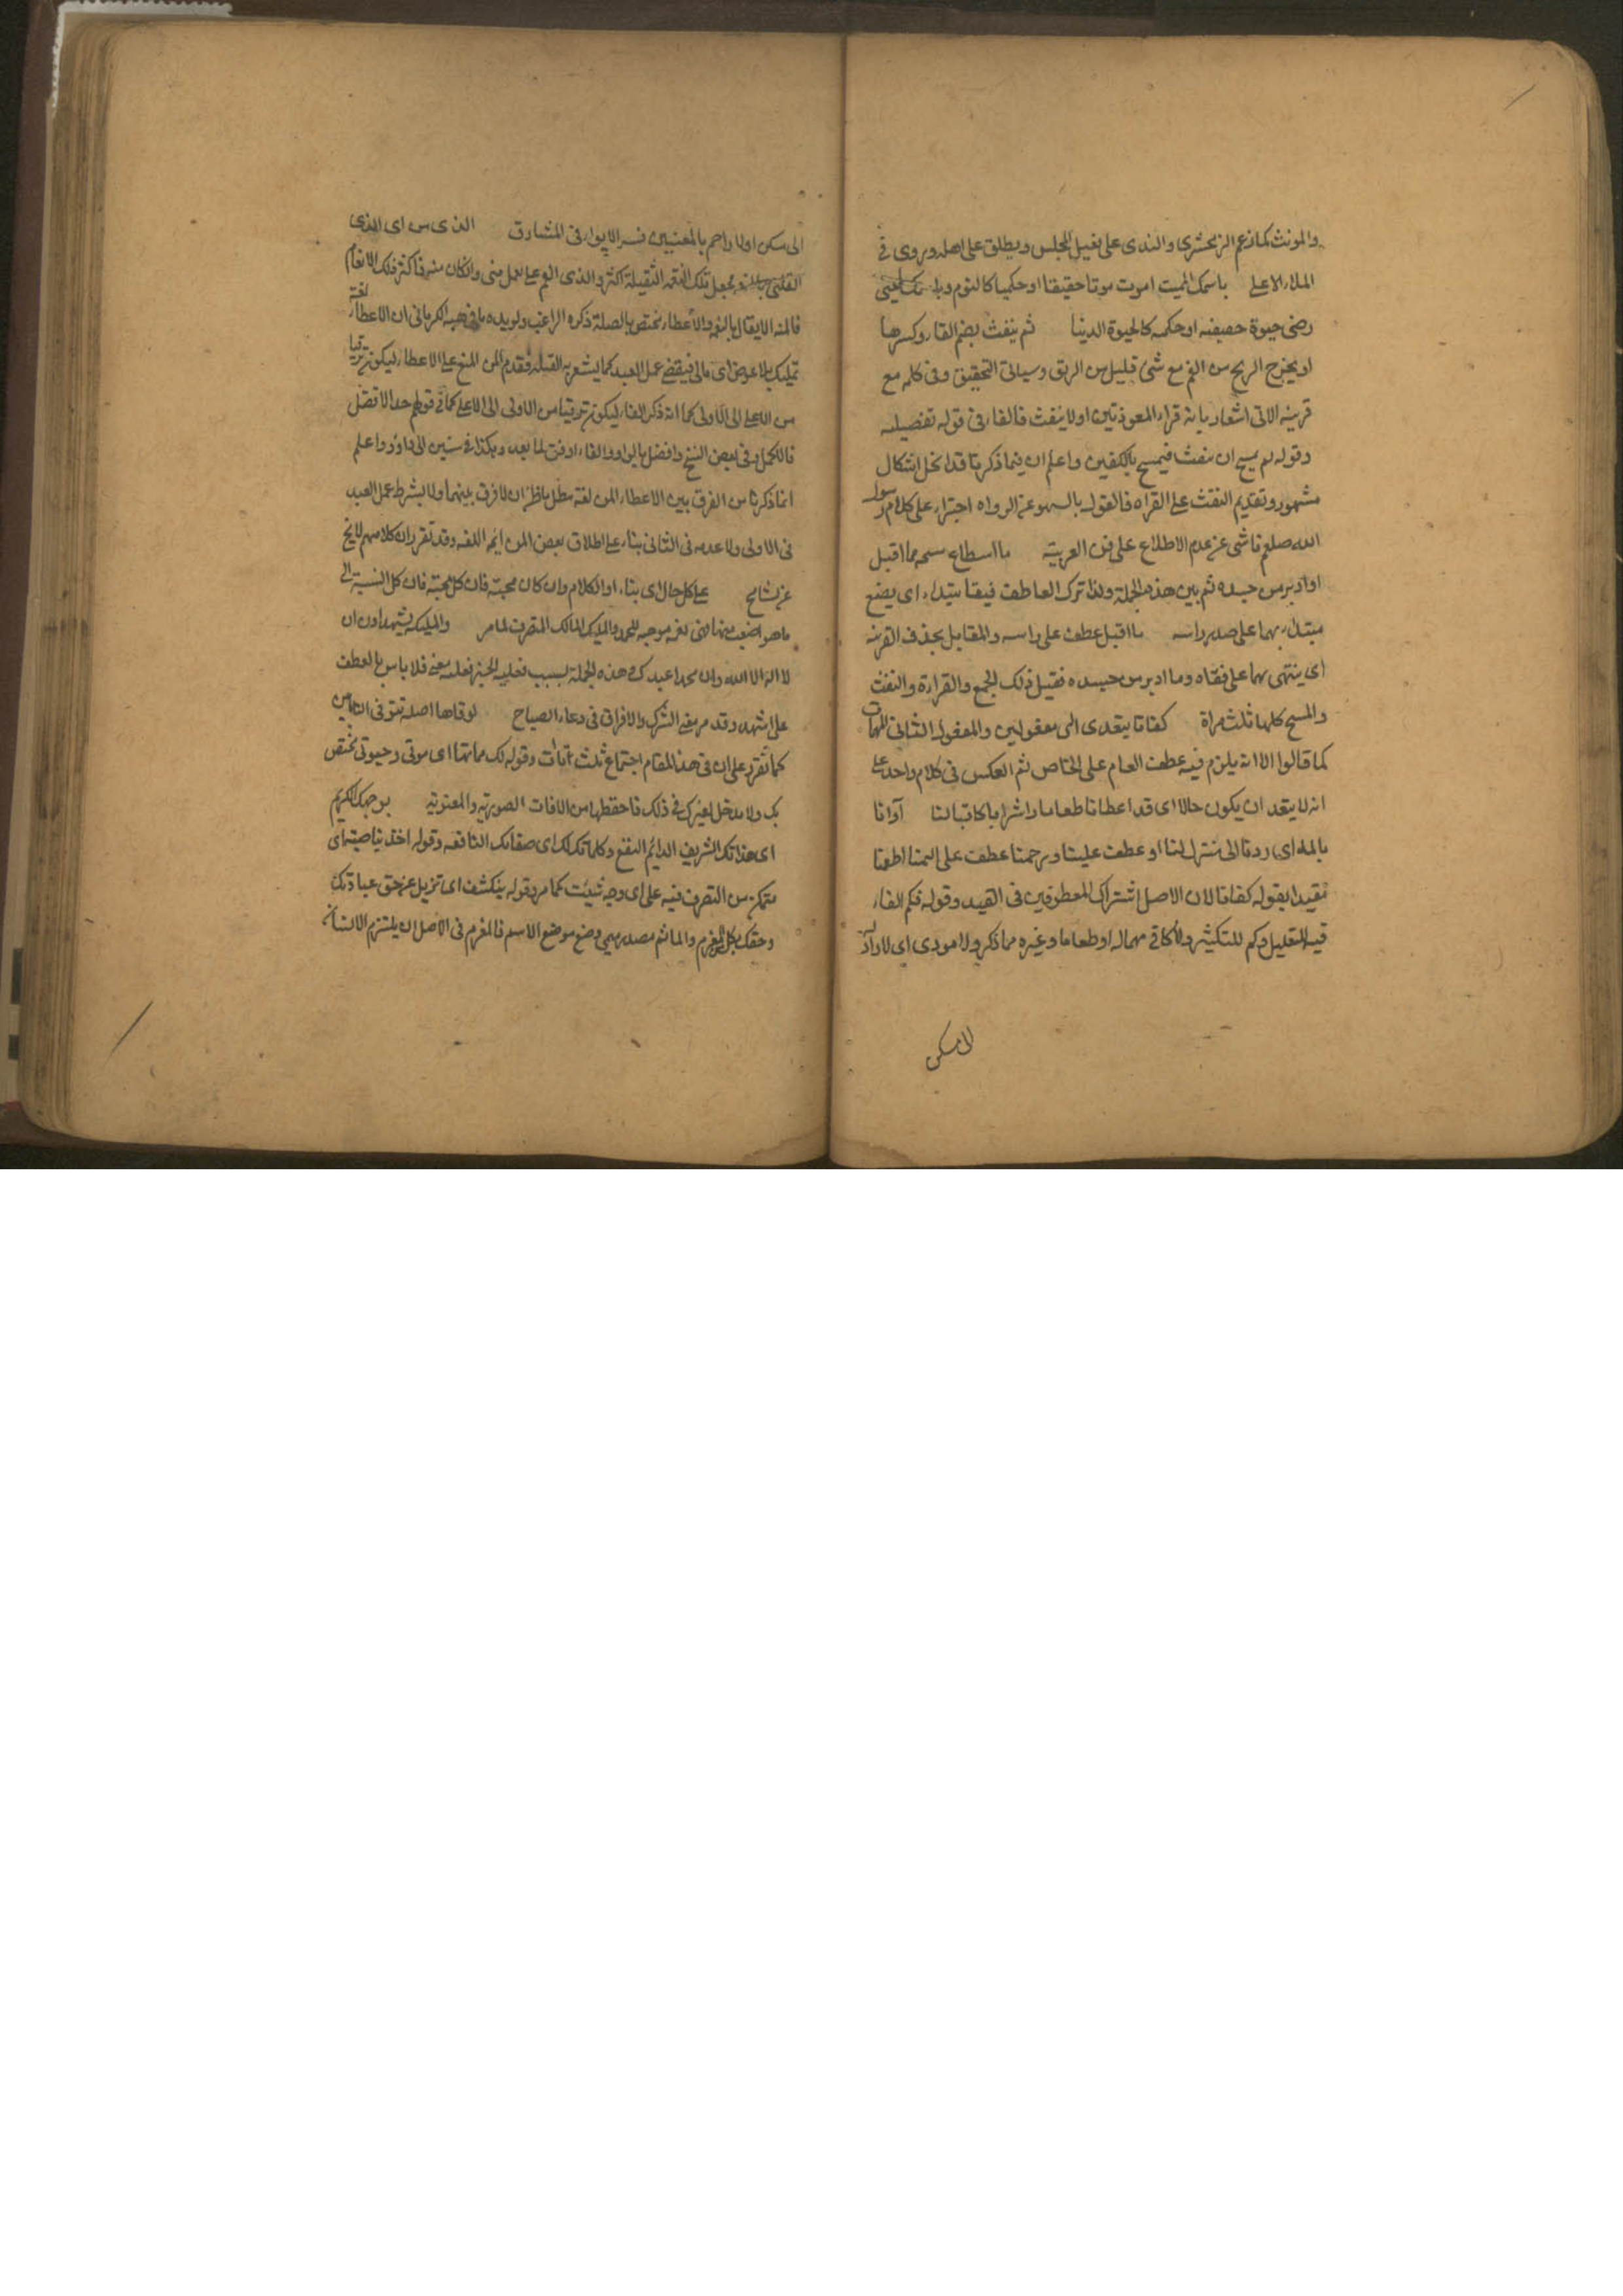 والمونث كما زعم الزمخشرى والندى على فعيل المجلس ويطلق على اهله وروى فى
الملاء الاعلى باسمك الميت اموت موتا حقيقنا او حكميا كالنوم
حيوة حقيقه او حكمه كالحيوة الدنيا ثم ينفث بضم الفاء وكسرها
او يخرج الريح من الفم مع شئ قليل من الريق وسياتى التحقيق وفى كلمه مع
قرينه الاتى اشعار بانه قراء المعوذتين اولا ينفث فالفاء فى قوله تفصيليه
وقوله ان ينفث فيمسح بالكفين واعلم ان فيما ذكرنا قد انحل اشكال
مشهور وتقديم النفث على القراه فالقول بالسهو عن الرواه اجتراء على كلام رسول
الله صلعم ناشى عن عدم الاطلاع على فن العربية ما اسطاع مما اقبل
او ادبر من جسده ثم بين هذه الجملة ولذا ترك العاطف فيقا يبتداء اى يضع
مبتداء بهما على صدر راسه ما اقبل عطف على راسه والمقابل بحذف القرينه
اى ينتهى بهما على فقاه وما ادبر من جسده فقيل ذلك الجمع والقراءة والنفث
والمسح كلها ثلث مراة كفانا يتعدى الى مفعولين والمفعول الثانى المهمات
كما قالوا الا انه يلزم فيه عطف العام على الخاص ثم العكس فى كلام واحد على
انه لا يتعد ان يكون حالا اى قد اعطانا طعاما واشرابا كافيا لنا آوانا
بالمد اى ردنا الى منزل لنا او عطف علينا ورحمنا عطف على اطعمنا
تقيدا بقوله كفانا لان الاصل اشتراك المعطوفين فى القيد وقوله فكم الفاء
فيه للتعليل وكم للتكثير ولا كافى مهماله او طعاما وغيره مما ذكر ولا مودى اى لا راد
الى مسكن
الى مسكن اولا راحم بالمعنيين فسر الايواء فى المشارق الذى من اى الذى
تلك النعمة الثقيلة اكثر والذى انعم على لعمل منى وان كان منه فاكثر فلك الانعام
فالمنه الايقال بالنعمه والاعطاء يختص بالصلة ذكره الراغب ويويده ما فى هبه الكرمانى ان الاعطاء لغة
تمليك بلا عوض اى مالى فيقضى عمل العبد كما يشعر به القبله فقدم المن المنع على الاعطاء ليكون ترقيا
من الاعلى الى الاولى كما انه ذكر الفاء ليكون ترقيا من الاولى الى الاعلى كما فى قولهم خذ الافضل
فالاكمل وفى بعض النسخ وافضل بالواو والفاء اوفق لما بعد وهكذا فى سنن ابى داود واعلم
انما ذكرنا من الفرق بين الاعطاء المن لغة مطل ما ظن ان لا فرق بينهما ولا يشرط عمل العبد
فى الاولى ولا عدمه فى الثانى بناء على اطلاق بعض المن ايمه اللغه وقد تقرر ان كلامهم لا يخ
عن تسامح على كل حال اى بناء او الكلام وان كان محبته فان كل محبته فان كل النسبة الى
ما هو اضعف منها فهى نعمه موجبه للحمد والمليك المالك المتصرف لما مر والمليكه يشهدون ان
لا اله الا الله وان محمدا عبدك هذه الجملة بسبب فلا باس بالعطف
على اشهد وقد مر معنى الشرك والاقراق فى دعاء الصباح توفاها اصله تتوفى التائين
كما تقرر على ان فى هذا المقام اجتماع ثلث تاآت وقوله لك مماتها اى موتى وحيوتى يختص
بك ولا مدخل لغيرك فى ذلك فاحفظها من الافات الصوريه والمعنويه بوجهك الكريم
اى بذاتك الشريف الدايم النفع وكلماتك اى صفاتك النافعه وقوله اخذ بناصيته اى
متمكن من التصرف فيه على اى وجه شيئت كما مر وقوله ينكشف اى تزيل عن حق عبادتك
وحقك بكل المغرم والماثم مصدر ميمى وضع موضع الاسم فالمغرم فى الاصل ان يلتزم الانسان